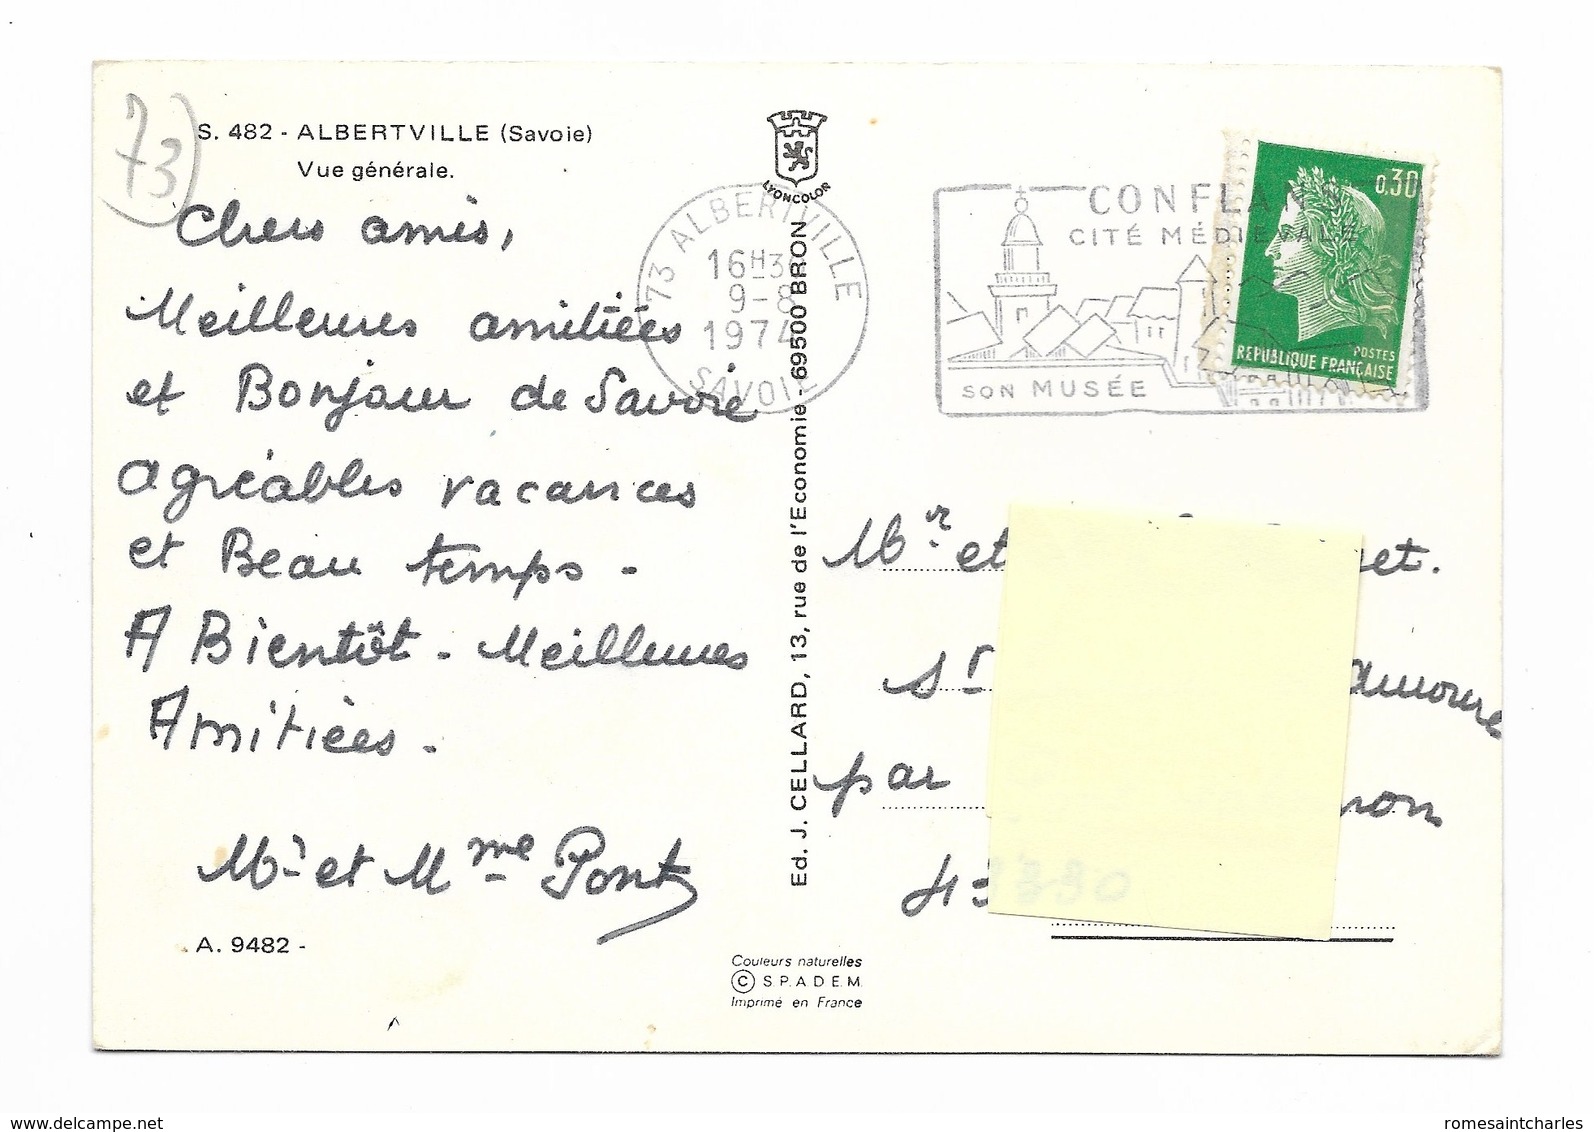 73
S. 482 - ALBERTVILLE (Savoie)
Vue générale.
Chers amis,
Meilleures amitiées
et Bonjour de Savoie
agréables vacances
et Beau temps -
A Bientôt - Meilleures
Amitiées -
Mr et Mme Pont
A. 9482 -
LYONCOLOR
Ed. J. CELLARD, 13, rue de l'Economie - 69500 BRON
Couleurs naturelles
© S.P.A.D.E.M.
Imprimé en France
73 ALBERTVILLE
16H30
9-8
1974
SAVOIE
CONFLANS
CITÉ MÉDIÉVALE
SON MUSÉE
0,30
POSTES
REPUBLIQUE FRANÇAISE
Mr et
par
www.delcampe.net
romesaintcharles